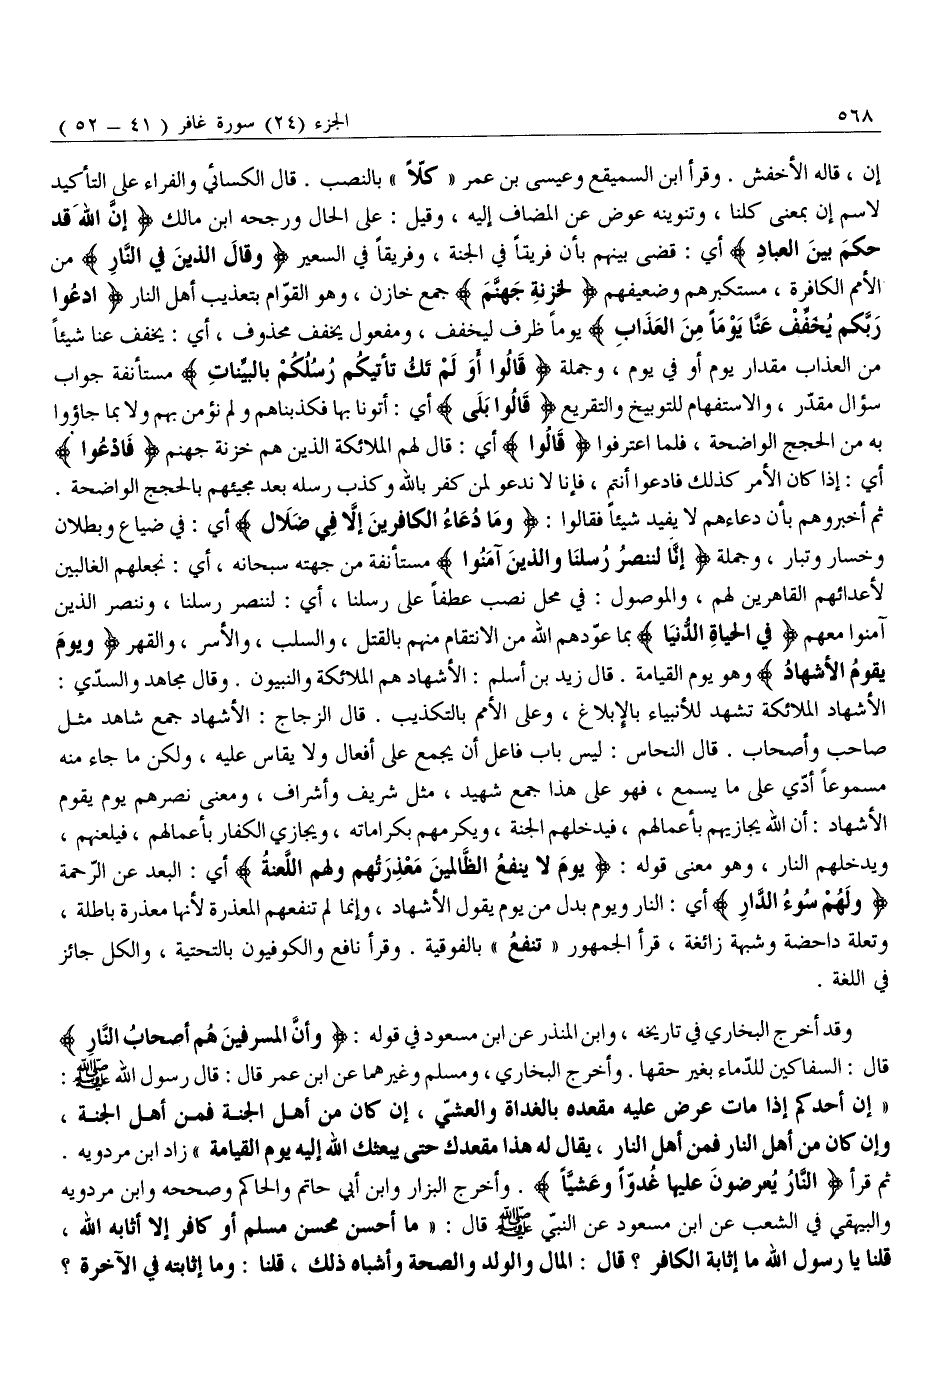 ٥٦٨
الجزء (٢٤) سورة غافر ( ٤١ – ٥٢ )
إن ، قاله الأخفش . وقرأ ابن السميقع وعيسى بن عمر « كلّاً » بالنصب . قال الكسائي والفراء على التأكيد
لاسم إن بمعنى كلنا ، وتنوينه عوض عن المضاف إليه ، وقيل : على الحال ورجحه ابن مالك ﴿ إنَّ اللهَ قد
حكمَ بينَ العبادِ ﴾ أي : قضى بينهم بأن فريقاً في الجنة ، وفريقاً في السعير ﴿ وقالَ الذينَ في النَّارِ ﴾ من
الأمم الكافرة ، مستكبرهم وضعيفهم ﴿ لخزنةِ جَهنَّمَ ﴾ جمع خازن ، وهو القوّام بتعذيب أهل النار ﴿ ادعُوا
رَبَّكم يُخَفِّفْ عَنَّا يَوْمَاً مِنَ العَذَابِ ﴾ يوماً ظرف ليخفف ، ومفعول يخفف محذوف ، أي : يخفف عنا شيئاً
من العذاب مقدار يوم أو في يوم ، وجملة ﴿ قَالُوا أَوَ لَمْ تَكُ تأتيكُم رُسُلُكُمْ بالبيِّناتِ ﴾ مستأنفة جواب
سؤال مقدّر ، والاستفهام للتوبيخ والتقريع ﴿ قَالُوا بَلَى ﴾ أي : أتونا بها فكذبناهم و لم نؤمن بهم ولا بما جاؤوا
به من الحجج الواضحة ، فلما اعترفوا ﴿ قَالُوا ﴾ أي : قال لهم الملائكة الذين هم خزنة جهنم ﴿ فَادْعُوا ﴾
أي : إذا كان الأمر كذلك فادعوا أنتم ، فإنا لا ندعو لمن كفر بالله وكذب رسله بعد مجيئهم بالحجج الواضحة .
ثم أخبروهم بأن دعاءهم لا يفيد شيئاً فقالوا : ﴿ ومَا دُعَاءُ الكافرينَ إلَّا فِي ضَلَال ﴾ أي : في ضياع وبطلان
وخسار وتبار ، وجملة ﴿ إنَّا لننصرُ رُسلنَا والذينَ آمَنُوا ﴾ مستأنفة من جهته سبحانه ، أي : نجعلهم الغالبين
لأعدائهم القاهرين لهم ، والموصول : في محل نصب عطفاً على رسلنا ، أي : لننصر رسلنا ، وننصر الذين
آمنوا معهم ﴿ في الحياةِ الدُّنيَا ﴾ بما عوّدهم الله من الانتقام منهم بالقتل ، والسلب ، والأسر ، والقهر ﴿ ويومَ
يقومُ الأشهادُ ﴾ وهو يوم القيامة . قال زيد بن أسلم : الأشهاد هم الملائكة والنبيون . وقال مجاهد والسدّي :
الأشهاد الملائكة تشهد للأنبياء بالإبلاغ ، وعلى الأمم بالتكذيب . قال الزجاج : الأشهاد جمع شاهد مثل
صاحب وأصحاب . قال النحاس : ليس باب فاعل أن يجمع على أفعال ولا يقاس عليه ، ولكن ما جاء منه
مسموعاً أدّي على ما يسمع ، فهو على هذا جمع شهيد ، مثل شريف وأشراف ، ومعنى نصرهم يوم يقوم
الأشهاد : أن الله يجازيهم بأعمالهم ، فيدخلهم الجنة ، ويكرمهم بكراماته ، ويجازي الكفار بأعمالهم ، فيلعنهم ،
ويدخلهم النار ، وهو معنى قوله : ﴿ يومَ لا ينفعُ الظَّالمينَ مَعْذِرَتُهم ولهم اللَّعنةُ ﴾ أي : البعد عن الرّحمة
﴿ ولَهُمْ سُوءُ الدَّارِ ﴾ أي : النار ويوم بدل من يوم يقول الأشهاد ، وإنما لم تنفعهم المعذرة لأنها معذرة باطلة ،
وتعلة داحضة وشبهة زائغة ، قرأ الجمهور « تنفعُ » بالفوقية . وقرأ نافع والكوفيون بالتحتية ، والكل جائز
في اللغة .
وقد أخرج البخاري في تاريخه ، وابن المنذر عن ابن مسعود في قوله : ﴿ وأنَّ المسرفينَ هُم أصحابُ النَّارِ ﴾
قال : السفاكين للدّماء بغير حقها . وأخرج البخاري ، ومسلم وغيرهما عن ابن عمر قال : قال رسول الله ﷺ :
« إن أحدكم إذا مات عرض عليه مقعده بالغداة والعشيّ ، إن كان من أهل الجنة فمن أهل الجنة ،
وإن كان من أهل النار فمن أهل النار ، يقال له هذا مقعدك حتى يبعثك الله إليه يوم القيامة » زاد ابن مردويه .
ثم قرأ ﴿ النَّارُ يُعرضونَ عليها غُدوّاً وعَشيَّاً ﴾ . وأخرج البزار وابن أبي حاتم والحاكم وصححه وابن مردويه
والبيهقي في الشعب عن ابن مسعود عن النبيّ ﷺ قال : « ما أحسن محسن مسلم أو كافر إلا أثابه الله ،
قلنا يا رسول الله ما إثابة الكافر ؟ قال : المال والولد والصحة وأشباه ذلك ، قلنا : وما إثابته في الآخرة ؟